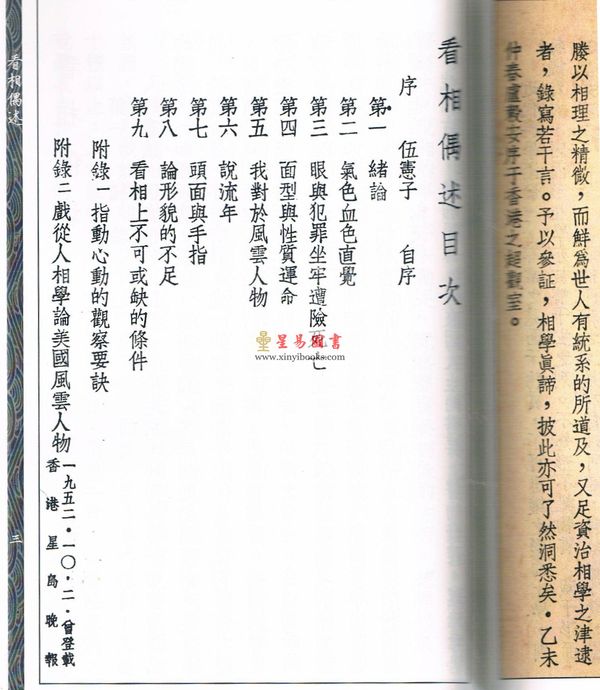 媵以相理之精微，而鮮為世人有統系的所道及，又足資治相學之津逮
者，錄寫若干言。予以參証，相學眞諦，披此亦可了然洞悉矣。乙未
仲春盧毅安序于香港之超觀室。
看相偶述目次
序　伍憲子　自序
第一　緒論
第二　氣色血色直覺
第三　眼與犯罪坐牢遭險死亡
第四　面型與性質運命
第五　我對於風雲人物
第六　說流年
第七　頭面與手指
第八　論形貌的不足
第九　看相上不可或缺的條件
附錄一指動心動的觀察要訣
附錄二戲從人相學論美國風雲人物
一九五二・一〇・二・曾登載
香港星島晚報
看相偶述
三
星易圖書
www.xinyibooks.com